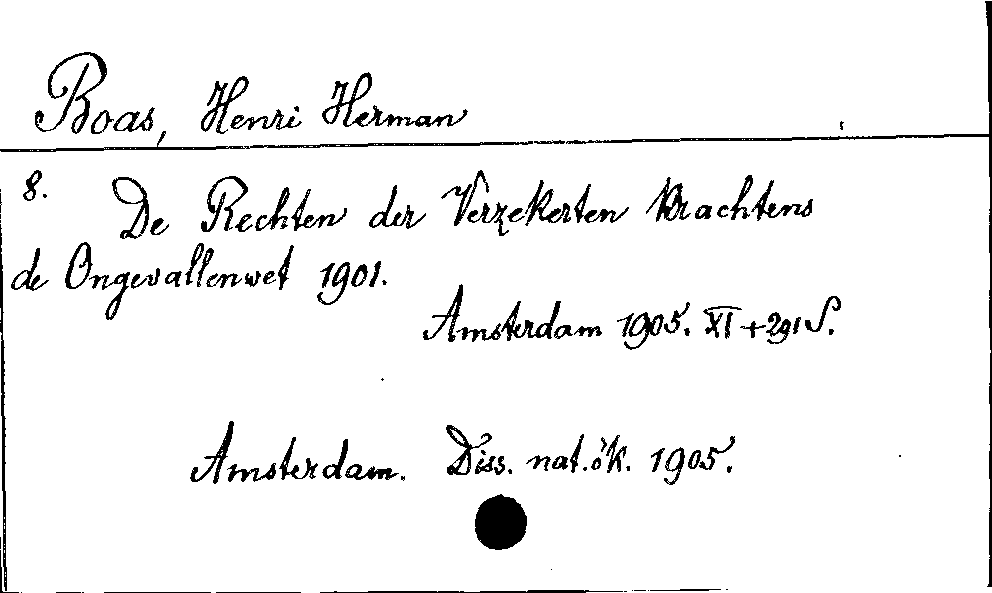 Boas, Henri Herman
8. De Rechten der Verzekerten Krachtens
de Ongevallenwet 1901.
Amsterdam 1905. XI + 291 S.
Amsterdam. Diss. nat.ök. 1905.